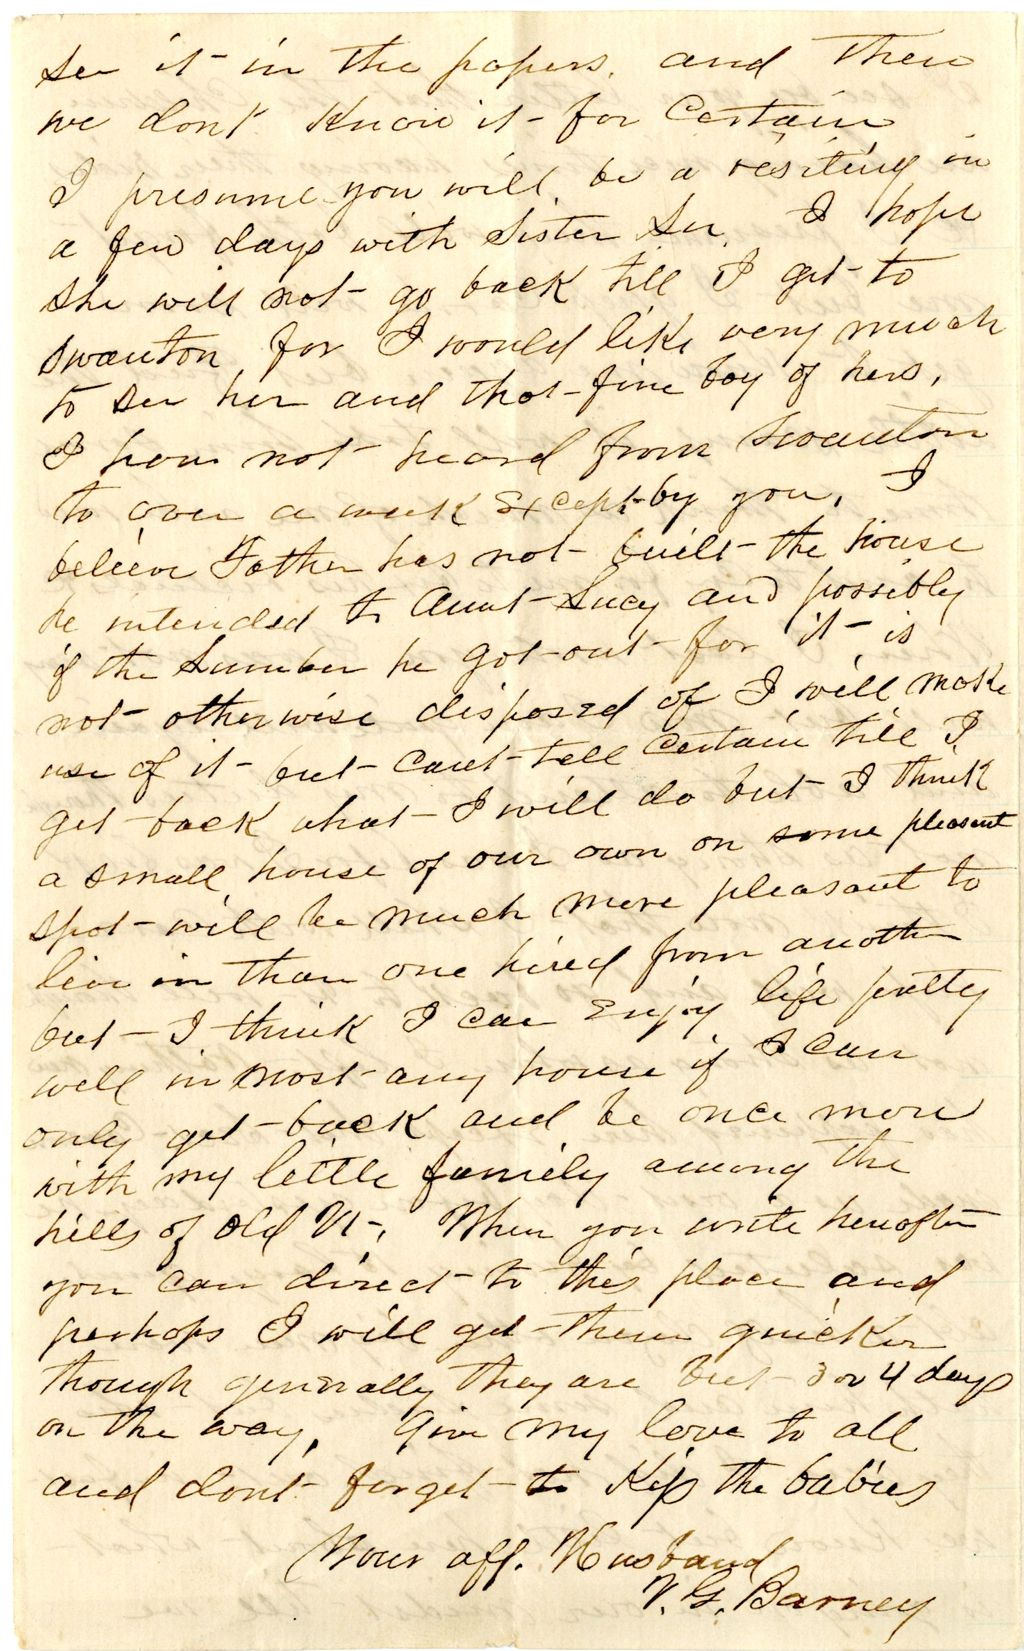 see it in the papers. and then
we dont know it for certain
I presume you will be a visiting in
a few days with Sister Su. I hope
she will not go back till I get to
Swanton for I would like very much
to see her and that fine boy of hers.
I have not heard from Swanton
to over a week except by you. I
believe Father has not built the house
he intended to Aunt Lucy and possibly
if the Lumber he got out for it is
not otherwise disposed of I will make
use of it but cant tell certain till I
get back what I will do but I think
a small house of our own on some pleasant
spot will be much more pleasant to
live in than one hired from another
but I think I can enjoy life pretty
well in most any house if I can
only get back and be once more
with my little family among the
hills of old Vt. When you write hereafter
you can direct to this place and
perhaps I will get them quicker
though generally they are but 3 or 4 days
on the way. Give my love to all
and dont forget to Kiss the babies
Your aff. Husband
V. G. Barney